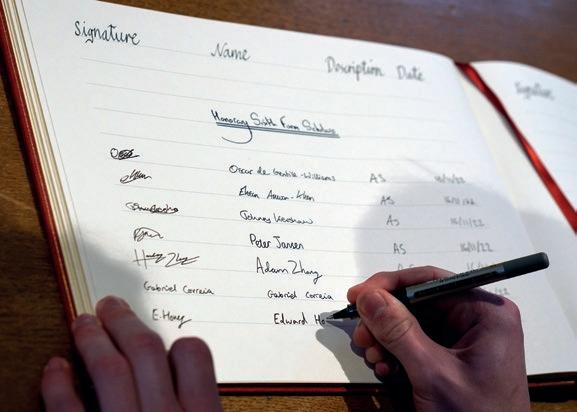 Signature Name Description Date
Signature
Honorary Sixth Form Scholars
Oscar de Gentile-Williams AS 16/11/22
Ehsan 16/11/22
Johnny Kershaw AS 16/11/22
Peter Jansen AS 16/11/22
Adam Zhang
Gabriel Correia Gabriel Correia
E. Honey Edward Ho